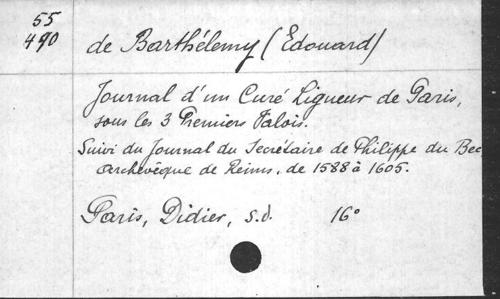 55
490
de Barthélemy (Édouard)
Journal d'un Curé Ligueur de Paris,
sous les 3 Premiers Valois.
Suivi du Journal du Secrétaire de Philippe du Bec
archevêque de Reims, de 1588 à 1605.
Paris, Didier, s.d. 16°